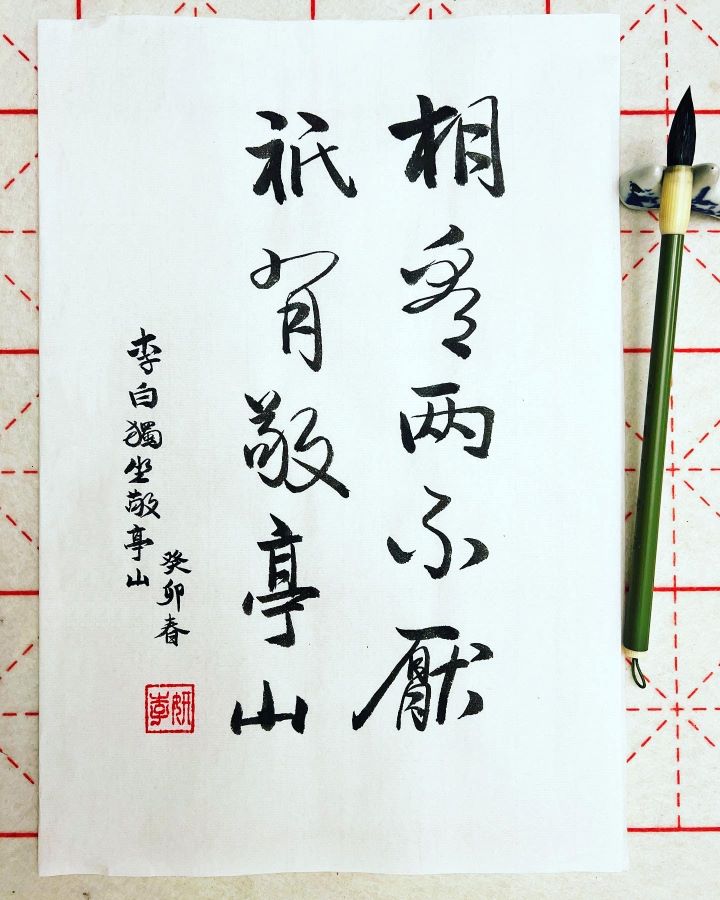 相看两不厭
祇有敬亭山
李白獨坐敬亭山
癸卯春
李妍